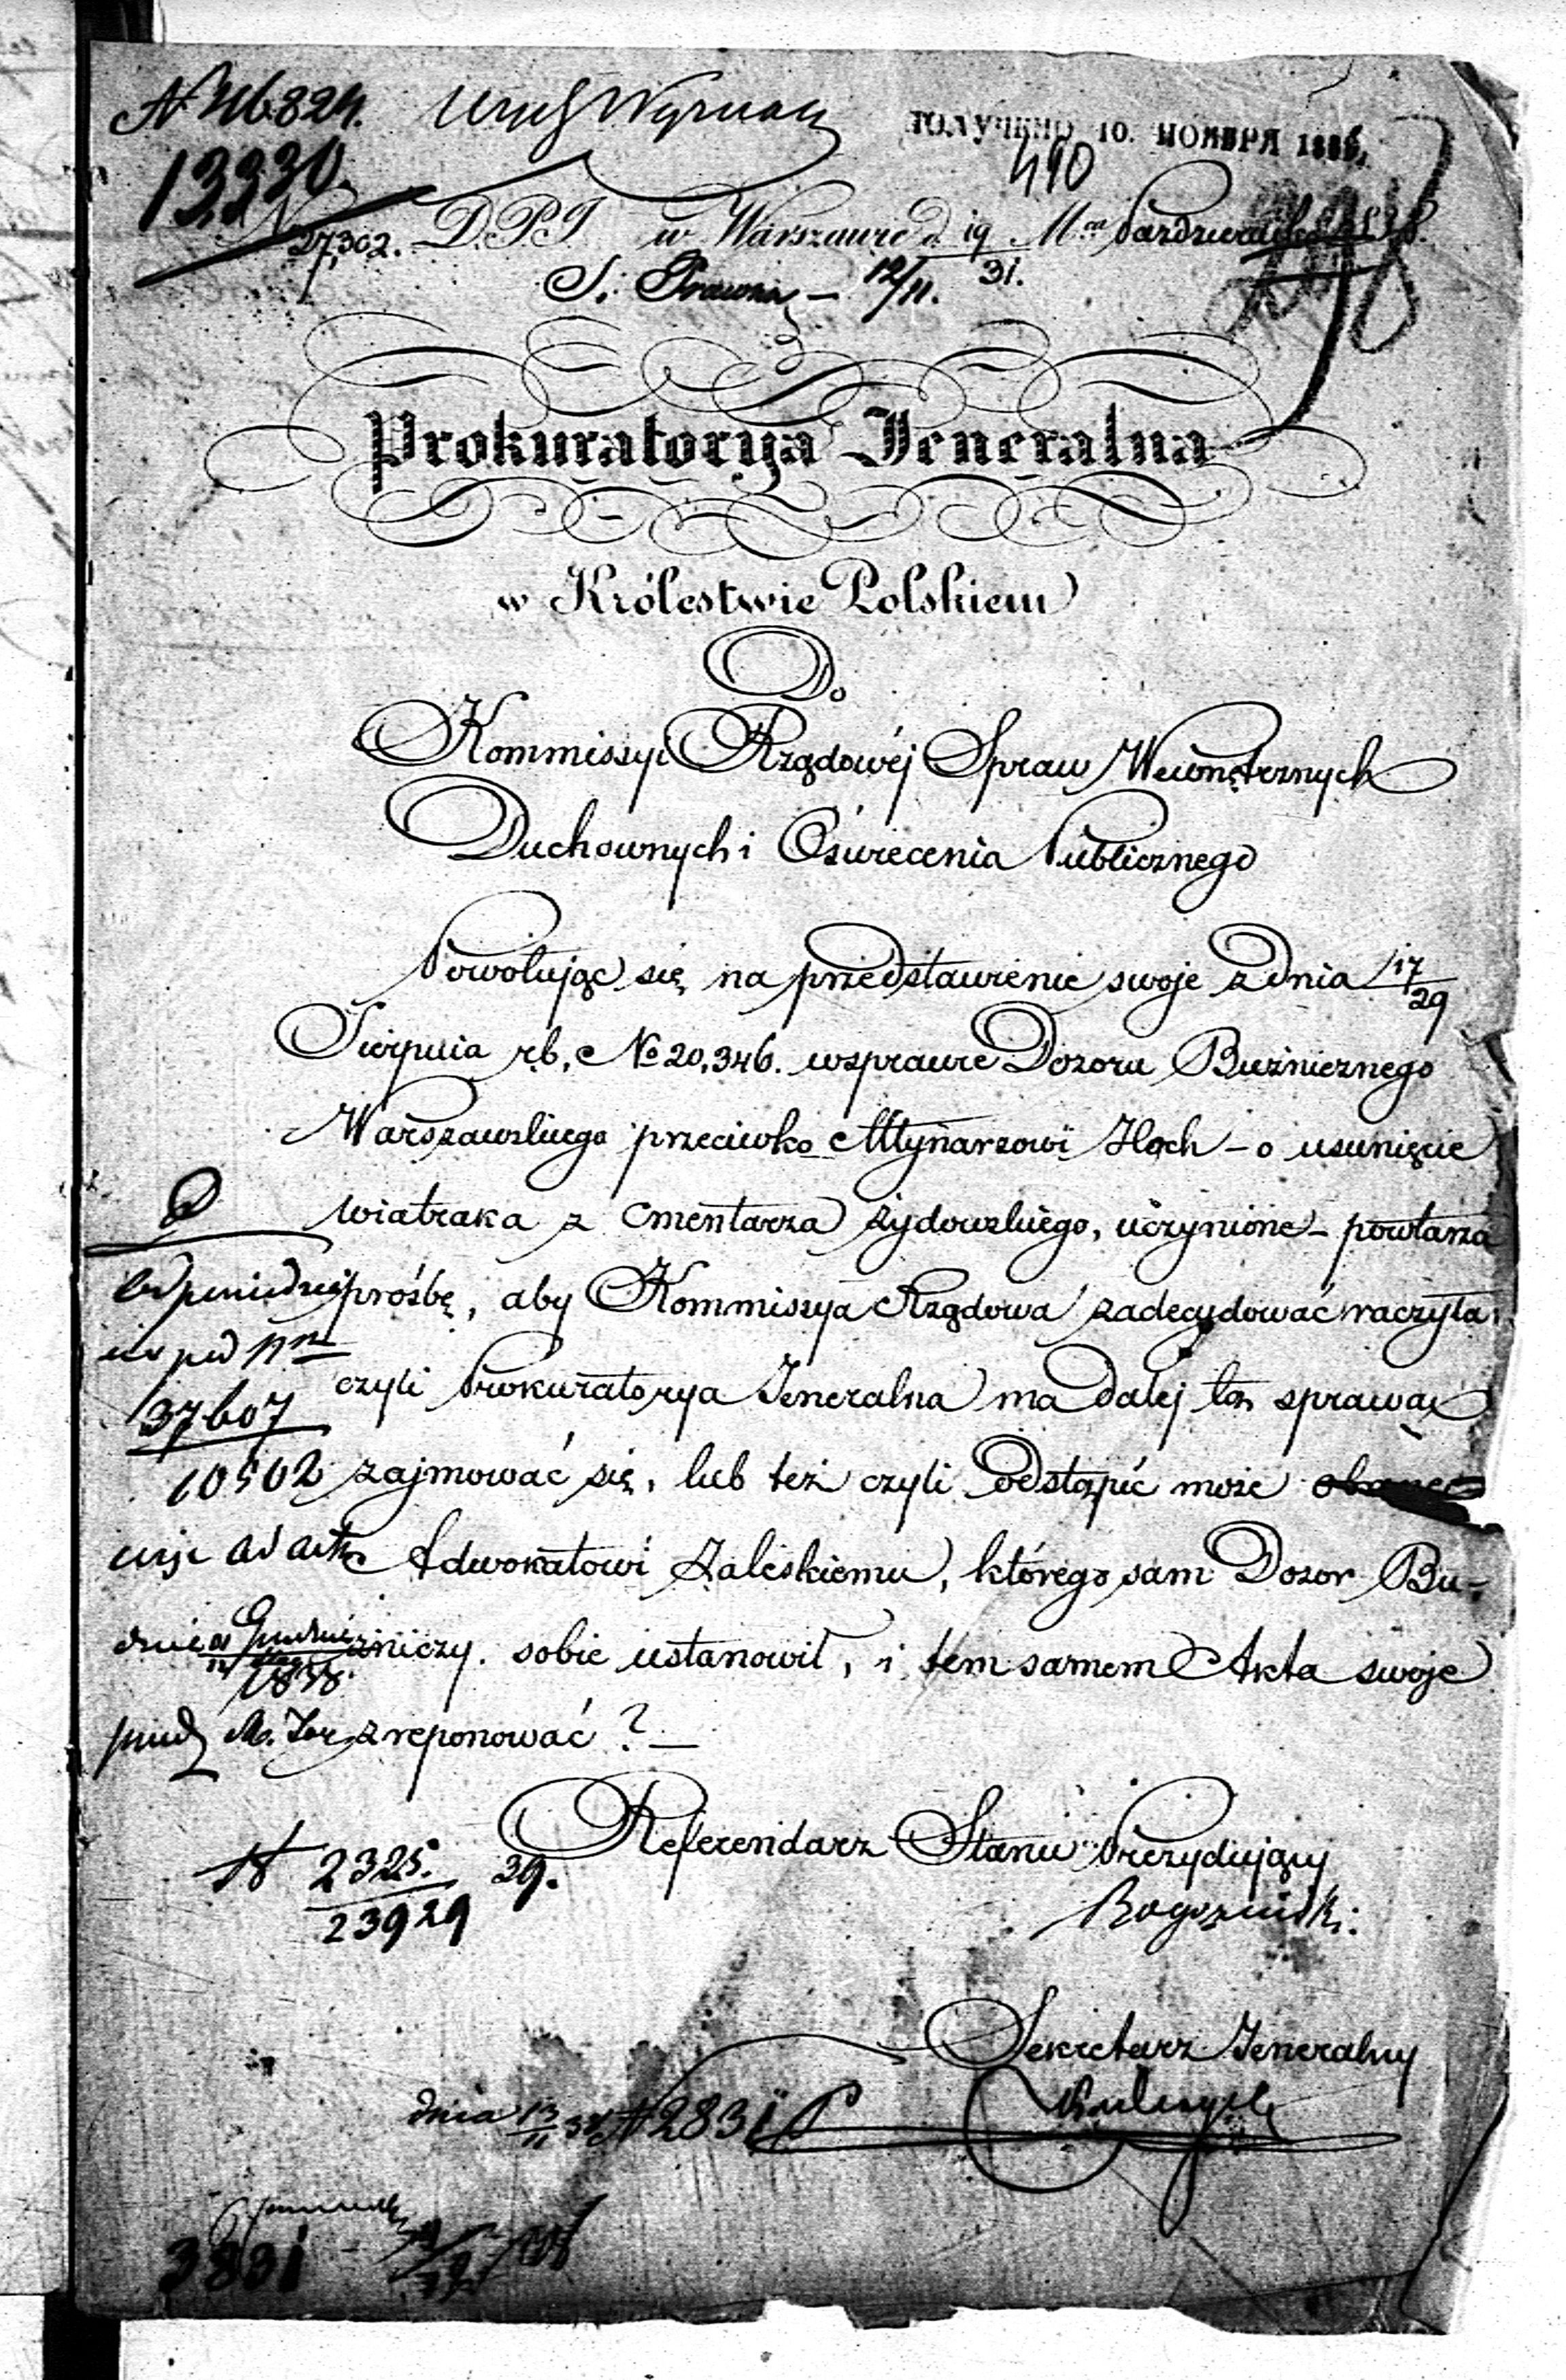 N 46824.
ПОЛУЧЕНО 10. НОЯБРЯ
490
13330
N 27,302. D.P.J. w Warszawie d. 19/31. Mca Października
S. Prawna – 12/11.
Prokuratorya Jeneralna
w Królestwie Polskiem
Do
Kommissyi Rządowéj Spraw Wewnętrznych
Duchownych i Oświecenia Publicznego
Powołując się na przedstawienie swoje z dnia 17/29
Sierpnia r.b. No 20,346. w sprawie Dozoru Bużnicznego
Warszawskiego przeciwko Młynarzowi Hoch – o usunięcie
wiatraka z cmentarza żydowskiego, uczynione – powtarza
prośbę, aby Kommissya Rządowa zadecydować raczyła,
czyli Prokuratorya Jeneralna ma dalej tą sprawą
zajmować się, lub też czyli odstąpić może
Adwokatowi Zaleskiemu, którego sam Dozor Bu-
źniczy sobie ustanowił, i tem samem Akta swoje
zreponować? –
pod
37607
10502
ad acta
dnia
1838
Referendarz Stanu Prezydujący
N 2325. 39.
23929
Sekretarz Jeneralny
dnia 13/11 38 N 2831
3831